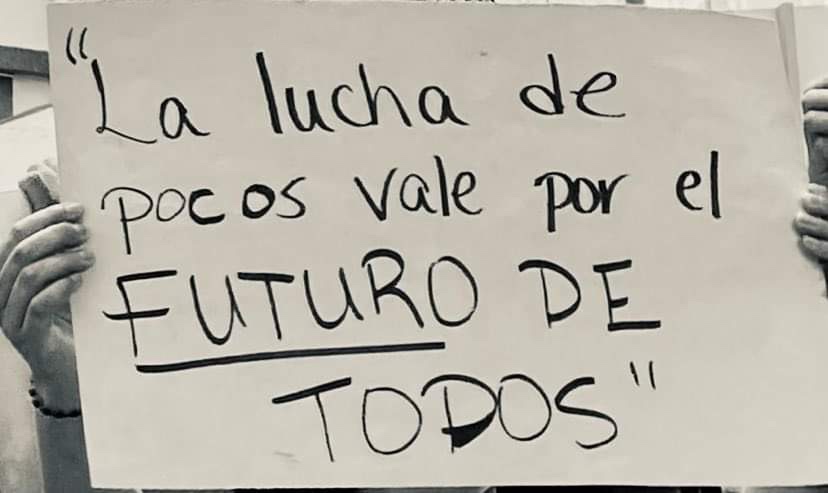 "La lucha de
pocos vale por el
FUTURO DE
TODOS"